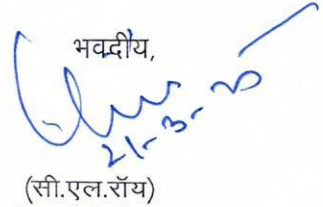 भवदीय,
21-3-25
(सी.एल.रॉय)